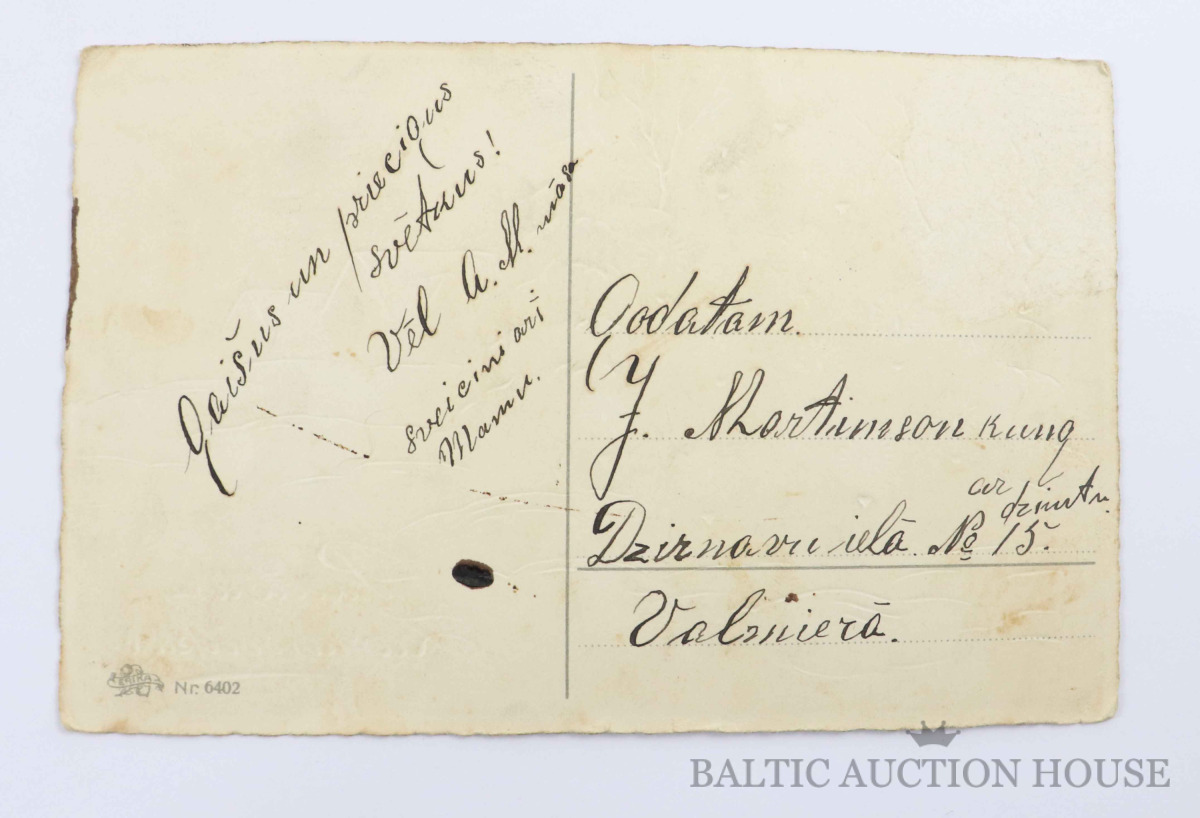 Gaišus un priecīgus
svētkus!
Vēl A. M. māsa
sveicini arī
Mamu.
Oodatam
J. Martinson kung
ar
dzimtu.
Dzirnavu ielā № 15.
Valmierā.
ERIKA
Nr. 6402
BALTIC AUCTION HOUSE